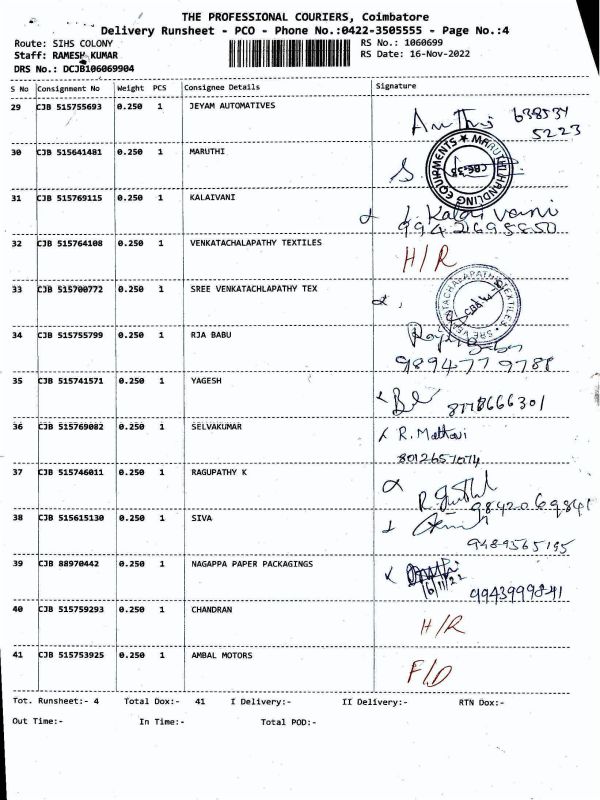 THE PROFESSIONAL COURIERS, Coimbatore
Delivery Runsheet - PCO - Phone No.:0422-3505555 - Page No.:4
Route: SIHS COLONY
RS No.: 1060699
Staff: RAMESH KUMAR
RS Date: 16-Nov-2022
DRS No.: DCJB106069904
S No Consignment No Weight PCS Consignee Details Signature
29 CJB 515755693 0.250 1 JEYAM AUTOMATIVES
638534
5223
30 CJB 515641481 0.250 1 MARUTHI
S.
MARUTHI HANDLING EQUIPMENTS
CBE-35
31 CJB 515769115 0.250 1 KALAIVANI
Kalai vani
32 CJB 515764108 0.250 1 VENKATACHALAPATHY TEXTILES
H/R
33 CJB 515700772 0.250 1 SREE VENKATACHLAPATHY TEX
SREE VENKATACHALAPATHY TEXTILES
34 CJB 515755799 0.250 1 RJA BABU
9894779788
35 CJB 515741571 0.250 1 YAGESH
36 CJB 515769082 0.250 1 SELVAKUMAR
R. Mathavi
8012657074
37 CJB 515746011 0.250 1 RAGUPATHY K
9842069841
38 CJB 515615130 0.250 1 SIVA
9489565195
39 CJB 88970442 0.250 1 NAGAPPA PAPER PACKAGINGS
16/11/22
9943999841
40 CJB 515759293 0.250 1 CHANDRAN
H/R
41 CJB 515753925 0.250 1 AMBAL MOTORS
F/D
Tot. Runsheet:- 4 Total Dox:- 41 I Delivery:- II Delivery:- RTN Dox:-
Out Time:- In Time:- Total POD:-